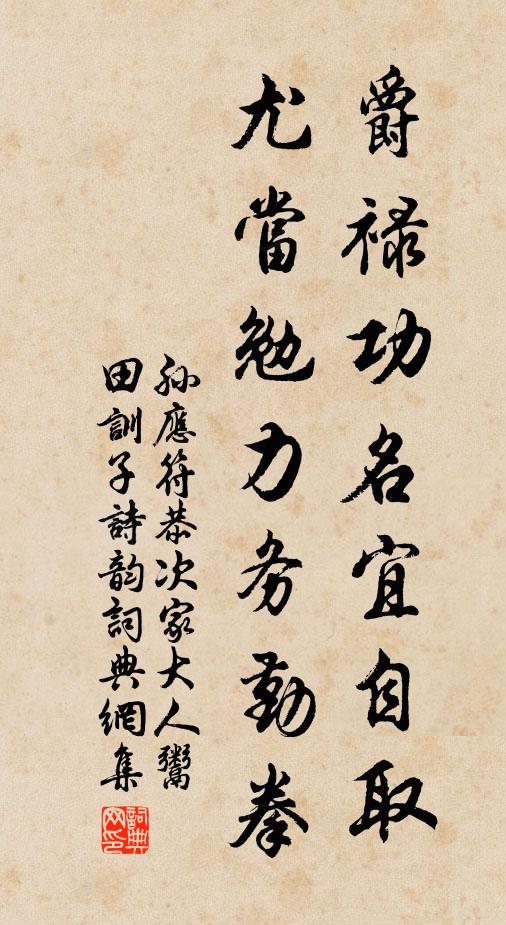 爵禄功名宜自取
尤當勉力务勤拳
孙應符恭次家大人鬻
田訓子詩韵詞典網集
詞典网印